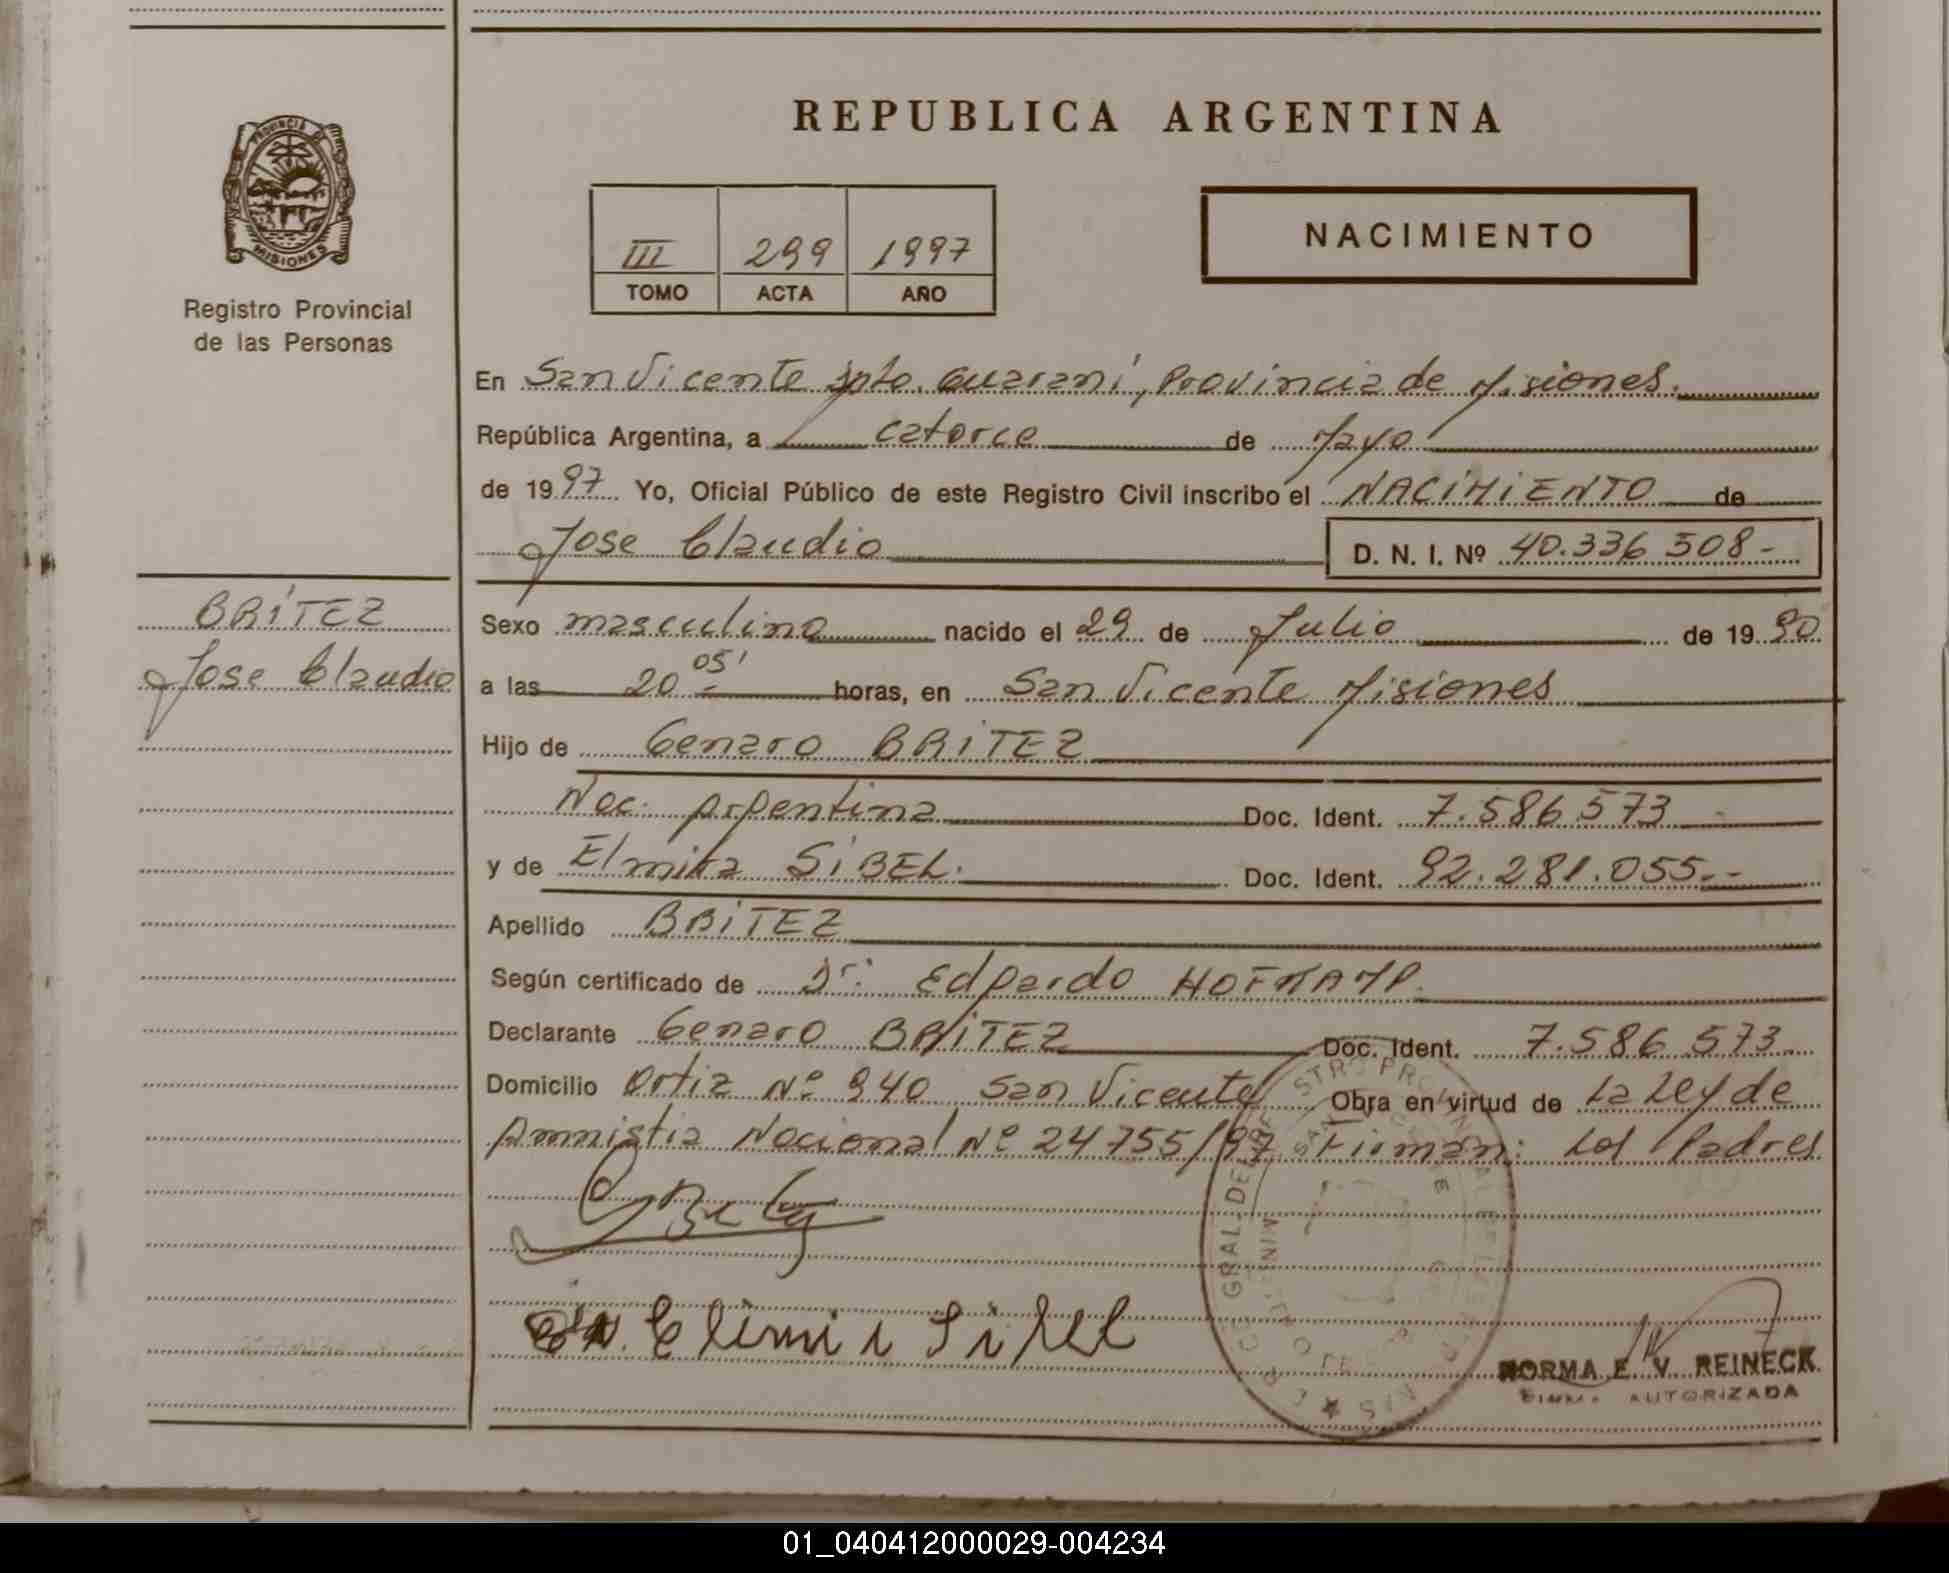 REPUBLICA ARGENTINA
PROVINCIA DE
MISIONES
Registro Provincial
de las Personas
III 299 1997
TOMO ACTA AÑO
NACIMIENTO
En San Vicente Dpto. Guaraní, Provincia de Misiones.
República Argentina, a catorce de Mayo
de 1997 Yo, Oficial Público de este Registro Civil inscribo el NACIMIENTO de
Jose Claudio D. N. I. Nº 40.336 508-
BRÍTEZ
Jose Claudio
Sexo masculino nacido el 29 de Julio de 1990
a las 20 05' horas, en San Vicente Misiones
Hijo de Genaro BRITEZ
Nac. Argentina Doc. Ident. 7.586 573
y de Elmira SIBEL. Doc. Ident. 92.281.055.--
Apellido BRITEZ
Según certificado de Dr. Edgardo HOFKAMP.
Declarante Genaro BRITEZ Doc. Ident. 7.586 573
Domicilio Ortiz Nº 940 San Vicente Obra en virtud de La Ley de
Amnistia Nacional Nº 24755/97 Firman: Los Padres
Sibel
NORMA E. V. REINECK
FIRMA AUTORIZADA
01_040412000029-004234